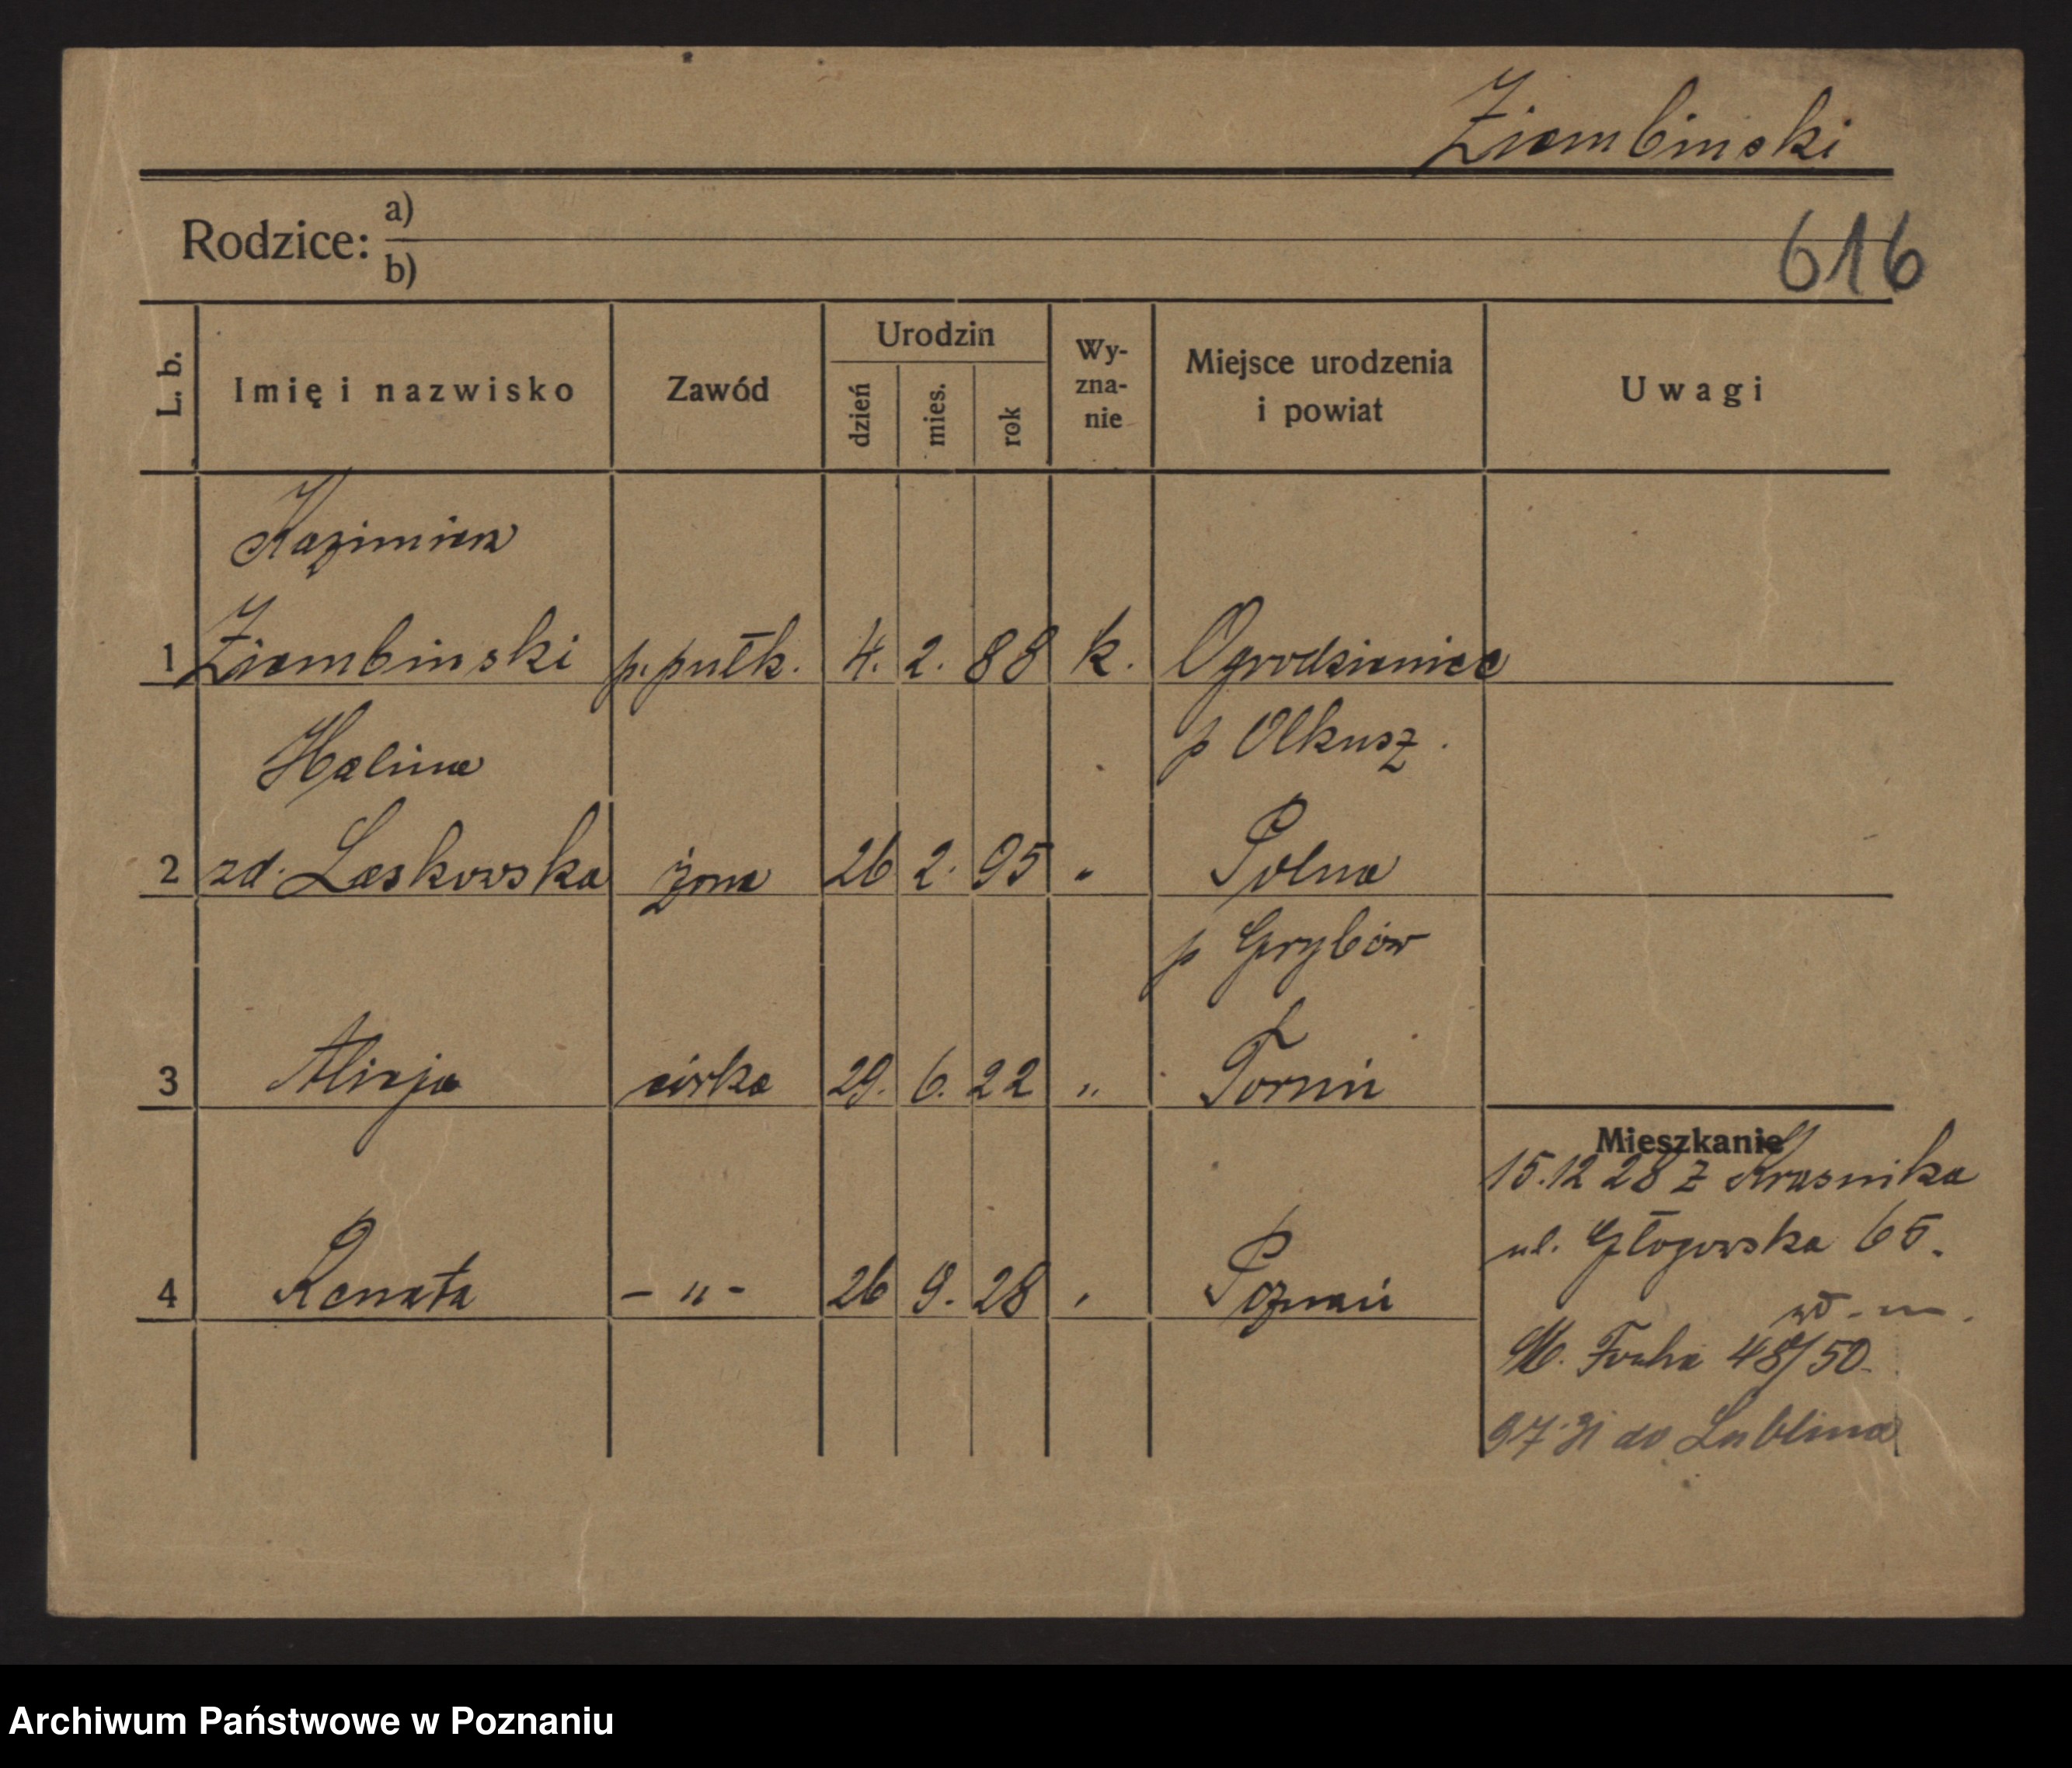 Ziembinski
Rodzice: a)
b)
616
L. b. Imię i nazwisko Zawód Urodzin dzień mies. rok Wy-zna-nie Miejsce urodzenia i powiat Uwagi
Kazimierz
1 Ziembinski p.pułk. 4. 2. 88 k. Ogrodzieniec
Halina p Olkusz.
2 zd. Laskowska żona 26 2. 95 " Polna
p Grybów
3 Alicja córka 29. 6. 22 " Toruń
Mieszkanie
15.12 28 z Krasnika
ul. Głogowska 65.
4 Renata - " - 26 9. 28 " Poznań
M. Focha 48/50.
9 7 31 do Lublina
Archiwum Państwowe w Poznaniu